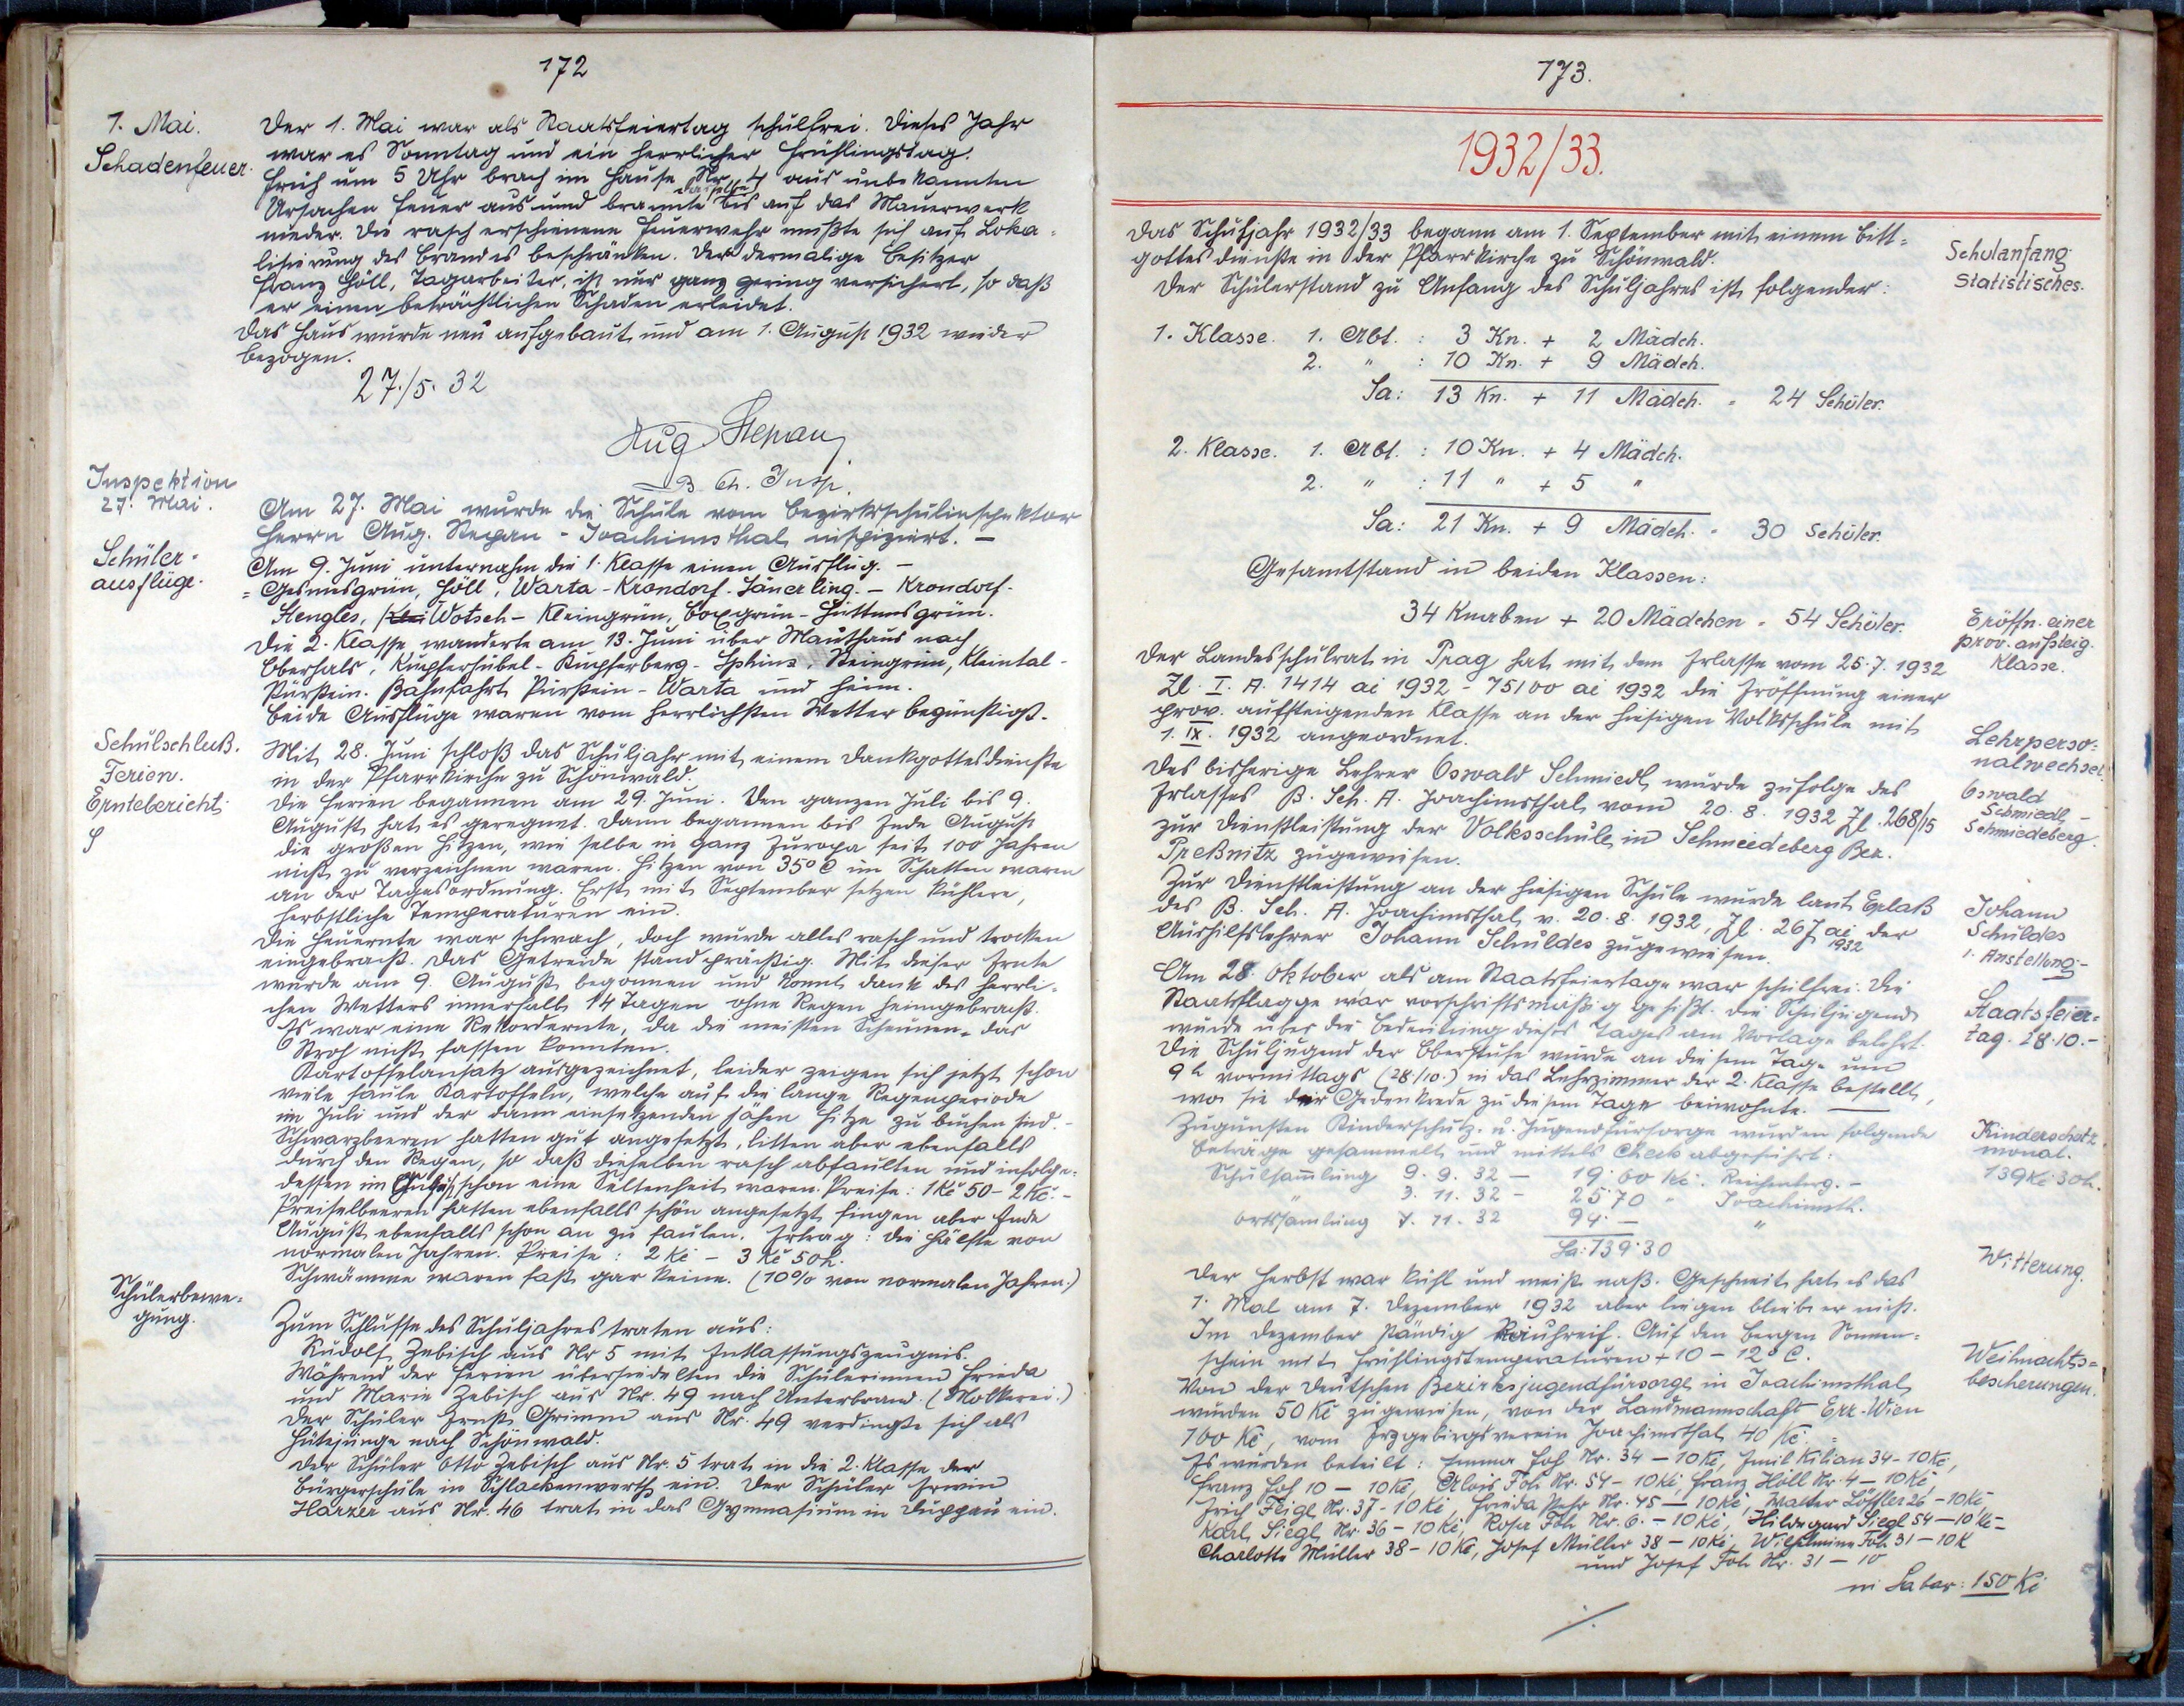 172
1. Mai.
Schadenfeuer.
Der 1. Mai war als Staatsfeiertag schulfrei. Dieses Jahr
war es Sonntag und ein herrlicher Frühlingstag.
Früh um 5 Uhr brach im Hause Nr. 4 aus unbekannten
Ursachen Feuer aus und brannte dasselbe bis auf das Mauerwerk
nieder. Die rasch erschienene Feuerwehr mußte sich auf Loka-
lisierung des Brandes beschränken. Der dermalige Besitzer
Franz Höll, Tagarbeiter, ist nur ganz gering versichert, so daß
er einen beträchtlichen Schaden erleidet.
Das Haus wurde neu aufgebaut und am 1. August 1932 wieder
bezogen.
27./5. 32
Aug Stepan
B. Sch. Insp.
Inspektion
27. Mai.
Am 27. Mai wurde die Schule vom Bezirksschulinspektor
Herrn Aug. Stepan - Joachimsthal inspiziert. -
Schüler-
ausflüge.
Am 9. Juni unternahm die 1. Klasse einen Ausflug. -
= Gesmesgrün, Höll, Warta - Krondorf - Säuerling. - Krondorf -
Stengles, Wotsch - Kleingrün, Boxgrün - Hüttmesgrün.
Die 2. Klasse wanderte am 13. Juni über Mauthaus nach
Oberhals, Kupferhübel - Kupferberg - Sphinx, Steingrün, Kleintal -
Pürstein. Bahnfahrt Pürstein - Warta und heim.
Beide Ausflüge waren vom herrlichsten Wetter begünstigt.
Schulschluß.
Ferien.
Erntebericht.
Mit 28. Juni schloß das Schuljahr mit einem Dankgottesdienste
in der Pfarrkirche zu Schönwald.
Die Ferien begannen am 29. Juni. Den ganzen Juli bis 9.
August hat es geregnet. Dann begannen bis Ende August
die großen Hitzen, wie selbe in ganz Europa seit 100 Jahren
nicht zu verzeichnen waren. Hitzen von 35° C im Schatten waren
an der Tagesordnung. Erst mit September setzen kühlere,
herbstliche Temperaturen ein.
Die Heuernte war schwach, doch wurde alles rasch und trocken
eingebracht. Das Getreide stand prächtig. Mit dieser Ernte
wurde am 9. August begonnen und konnt dank des herrli-
chen Wetters innerhalb 14 Tagen ohne Regen heimgebracht.
Es war eine Rekordernte, da die meisten Scheunen das
Stroh nicht fassen konnten.
Kartoffelansatz ausgezeichnet, leider zeigen sich jetzt schon
viele faule Kartoffeln, welche auf die lange Regenperiode
im Juli und der dann einsetzenden jähen Hitze zu buchen sind. -
Schwarzbeeren hatten gut angesetzt, litten aber ebenfalls
durch den Regen, so daß dieselben rasch abfaulten und infolge-
dessen im schon eine Seltenheit waren. Preise: 1 Kč 50 - 2 Kč. -
Preiselbeeren hatten ebenfalls schön angesetzt fingen aber Ende
August ebenfalls schon an zu faulen. Ertrag: die Hälfte von
normalen Jahren. Preise: 2 Kč - 3 Kč 50 h.
Schwämme waren fast gar keine. (10% von normalen Jahren.)
Schülerbewe-
gung.
Zum Schlusse des Schuljahres traten aus:
Rudolf Zebisch aus Nr 5 mit Entlassungszeugnis.
Während der Ferien übersiedelten die Schülerinnen Frieda
und Marie Zebisch aus Nr. 49 nach Unterbrand. (Molkerei.)
Der Schüler Ernst Grimm aus Nr. 49 verdingte sich als
Hütejunge nach Schönwald.
Der Schüler Otto Zebisch aus Nr. 5 trat in die 2. Klasse der
Bürgerschule in Schlackenwerth ein. Der Schüler Erwin
Harzer aus Nr. 46 trat in das Gymnasium in Duppau ein.
173.
1932/33.
Das Schuljahr 1932/33 begann am 1. September mit einem Bitt-
gottesdienste in der Pfarrkirche zu Schönwald.
Schulanfang
Statistisches.
Der Schülerstand zu Anfang des Schuljahres ist folgender:
1. Klasse. 1. Abt. : 3 Kn. + 2 Mädch.
2. " : 10 Kn. + 9 Mädch.
Sa: 13 Kn. + 11 Mädch. = 24 Schüler.
2. Klasse. 1. Abt. : 10 Kn. + 4 Mädch.
2. " : 11 " + 5 "
Sa: 21 Kn. + 9 Mädch. = 30 Schüler.
Gesamtstand in beiden Klassen:
34 Knaben + 20 Mädchen = 54 Schüler.
Eröffn. einer
prov. aufsteig.
Klasse.
Der Landesschulrat in Prag hat mit dem Erlasse vom 25.7. 1932
Zl. I. A. 1414 ai 1932 - 75100 ai 1932 die Eröffnung einer
prov. aufsteigenden Klasse an der hiesigen Volksschule mit
1. IX. 1932 angeordnet.
Lehrperso-
nalwechsel.
Oswald
Schmiedl -
Schmiedeberg.
Des bisherige Lehrer Oswald Schmiedl wurde zufolge des
Erlasses B. Sch. A. Joachimsthal vom 20. 8. 1932 Zl. 268/5
zur Dienstleistung der Volksschule in Schmiedeberg Bez.
Preßnitz zugewiesen.
Zur Dienstleistung an der hiesigen Schule wurde laut Erlaß
des B. Sch. A. Joachimsthal v. 20. 8. 1932, Zl. 267 ai 1932 der
Aushilfslehrer Johann Schuldes zugewiesen.
Johann
Schuldes
1. Anstellung. -
Am 28. Oktober als am Staatsfeiertage war schulfrei. Die
Staatsflagge war vorschriftsmäßig gehißt. Die Schuljugend
wurde über die Bedeutung dieses Tages am Vortage belehrt.
Die Schuljugend der Oberstufe wurde an diesem Tage um
9 h vormittags (28/10.) in das Lehrzimmer der 2. Klasse bestellt,
wo sie der Gedenkrede zu diesem Tage beiwohnte. —
Staatsfeier-
tag. 28.10. -
Zugunsten Kinderschutz- u. Jugendfürsorge wurden folgende
Beträge gesammelt und mittels Check abgeführt:
Kinderschutz
monat.
139 Kč 30 h.
Schulsammlung 9. 9. 32 — 19.60 Kč. Reichenberg. -
" 3. 11. 32 - 25.70 " Joachimsth.
Ortssamlung 7. 11. 32 94. — "
Sa: 139.30
Witterung.
Der Herbst war kühl und meist naß. Geschneit hat es das
1. Mal am 7. Dezember 1932 aber liegen blieb er nicht.
Im Dezember ständig Rauhreif. Auf den Bergen Sonnen-
schein mit Frühlingstemperaturen + 10 - 12° C.
Weihnachts-
bescherungen.
Von der Deutschen Bezirksjugendfürsorge in Joachimsthal
wurden 50 Kč zugewiesen, von der Landmannschaft Erz-Wien
100 Kč, vom Erzgebirgsverein Joachimsthal 40 Kč. =
Es wurden beteilt: Emma Foh Nr. 34 — 10 Kč, Emil Kilian 34 - 10 Kč,
Franz Foh 10 — 10 Kč, Alois Foh Nr. 54 - 10 Kč, Franz Höll Nr. 4 — 10 Kč,
Erich Feigl Nr. 37 - 10 Kč, Frieda Nr. 45 — 10 Kč, Walter Löffler 26 - 10 Kč,
Karl Siegl Nr. 36 - 10 Kč, Rosa Foh Nr. 6. - 10 Kč, Hildegard Siegl 54 — 10 Kč =
Charlotte Müller 38 - 10 Kč, Josef Müller 38 — 10 Kč, Wilhelmine Foh 31 — 10 K
und Josef Foh Nr. 31 — 10
in Labar: 150 Kč